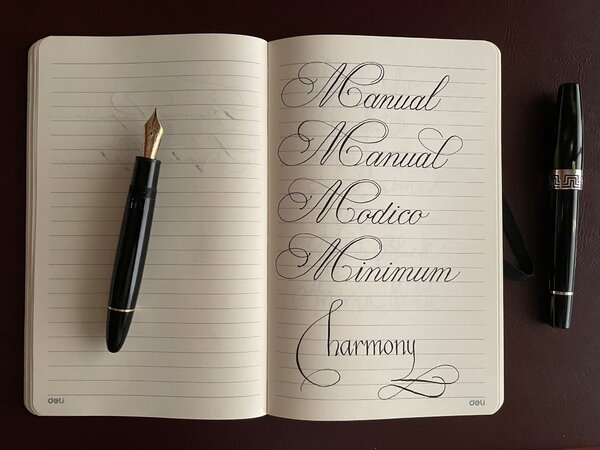 deli
Manual
Manual
Modico
Minimum
harmony
deli